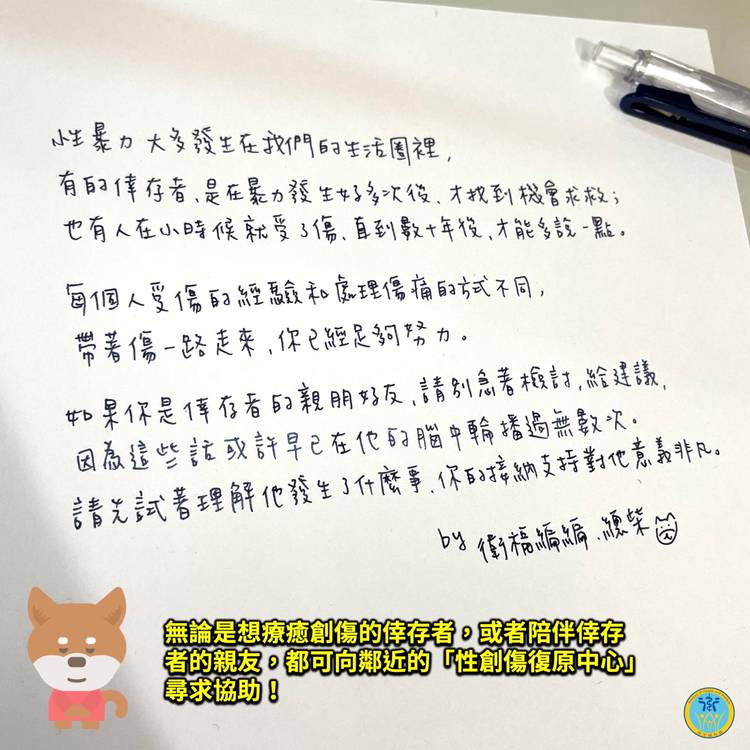 性暴力大多發生在我們的生活圈裡,
有的倖存者、是在暴力發生好多次後、才找到機會求救;
也有人在小時候就受了傷、直到數十年後、才能多說一點。
每個人受傷的經驗和處理傷痛的方式不同,
帶著傷一路走來、你已經足夠努力。
如果你是倖存者的親朋好友、請別急著檢討、給建議,
因為這些話或許早已在他的腦中輪播過無數次。
請先試著理解他發生了什麼事、你的接納支持對他意義非凡。
by 衛福編編、總柴
無論是想療癒創傷的倖存者,或者陪伴倖存
者的親友,都可向鄰近的「性創傷復原中心」
尋求協助!